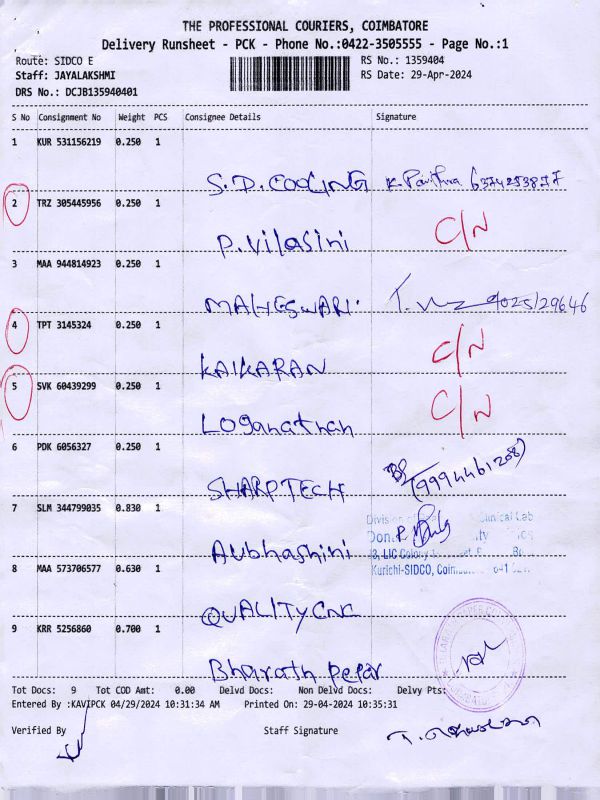 THE PROFESSIONAL COURIERS, COIMBATORE
Delivery Runsheet - PCK - Phone No.:0422-3505555 - Page No.:1
Route: SIDCO E RS No.: 1359404
Staff: JAYALAKSHMI RS Date: 29-Apr-2024
DRS No.: DCJB135940401
S No Consignment No Weight PCS Consignee Details Signature
1 KUR 531156219 0.250 1
S.D.COOLING K. Pavithra 6374253877
2 TRZ 305445956 0.250 1
P.Vilasini C/N
3 MAA 944814923 0.250 1
MAHESWARI T. 9025129646
4 TPT 3145324 0.250 1
KAIKARAN C/N
5 SVK 60439299 0.250 1
Loganathan C/N
6 PDK 6056327 0.250 1
SHARP TECH (9994461208)
7 SLM 344799035 0.830 1
Division of Clinical Lab
Aubhashini
LIC Colony
8 MAA 573706577 0.630 1
Kurichi-SIDCO,
QUALITY CNC
9 KRR 5256860 0.700 1
Bharath
Tot Docs: 9 Tot COD Amt: 0.00 Delvd Docs: Non Delvd Docs: Delvy Pts:
Entered By :KAVIPCK 04/29/2024 10:31:34 AM Printed On: 29-04-2024 10:35:31
Verified By Staff Signature